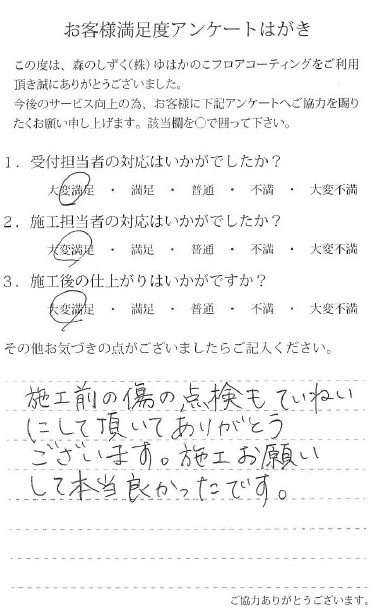 お客様満足度アンケートはがき
この度は、森のしずく(株)ゆはかのこフロアコーティングをご利用
頂き誠にありがとうございました。
今後のサービス向上の為、お客様に下記アンケートへご協力を賜り
たくお願い申し上げます。該当欄を○で囲って下さい。
1．受付担当者の対応はいかがでしたか？
大変満足 ・ 満足 ・ 普通 ・ 不満 ・ 大変不満
2．施工担当者の対応はいかがでしたか？
大変満足 ・ 満足 ・ 普通 ・ 不満 ・ 大変不満
3．施工後の仕上がりはいかがですか？
大変満足 ・ 満足 ・ 普通 ・ 不満 ・ 大変不満
その他お気づきの点がございましたらご記入ください。
施工前の傷の点検もていねい
にして頂いてありがとう
ございます。施工お願い
して本当良かったです。
ご協力ありがとうございます。